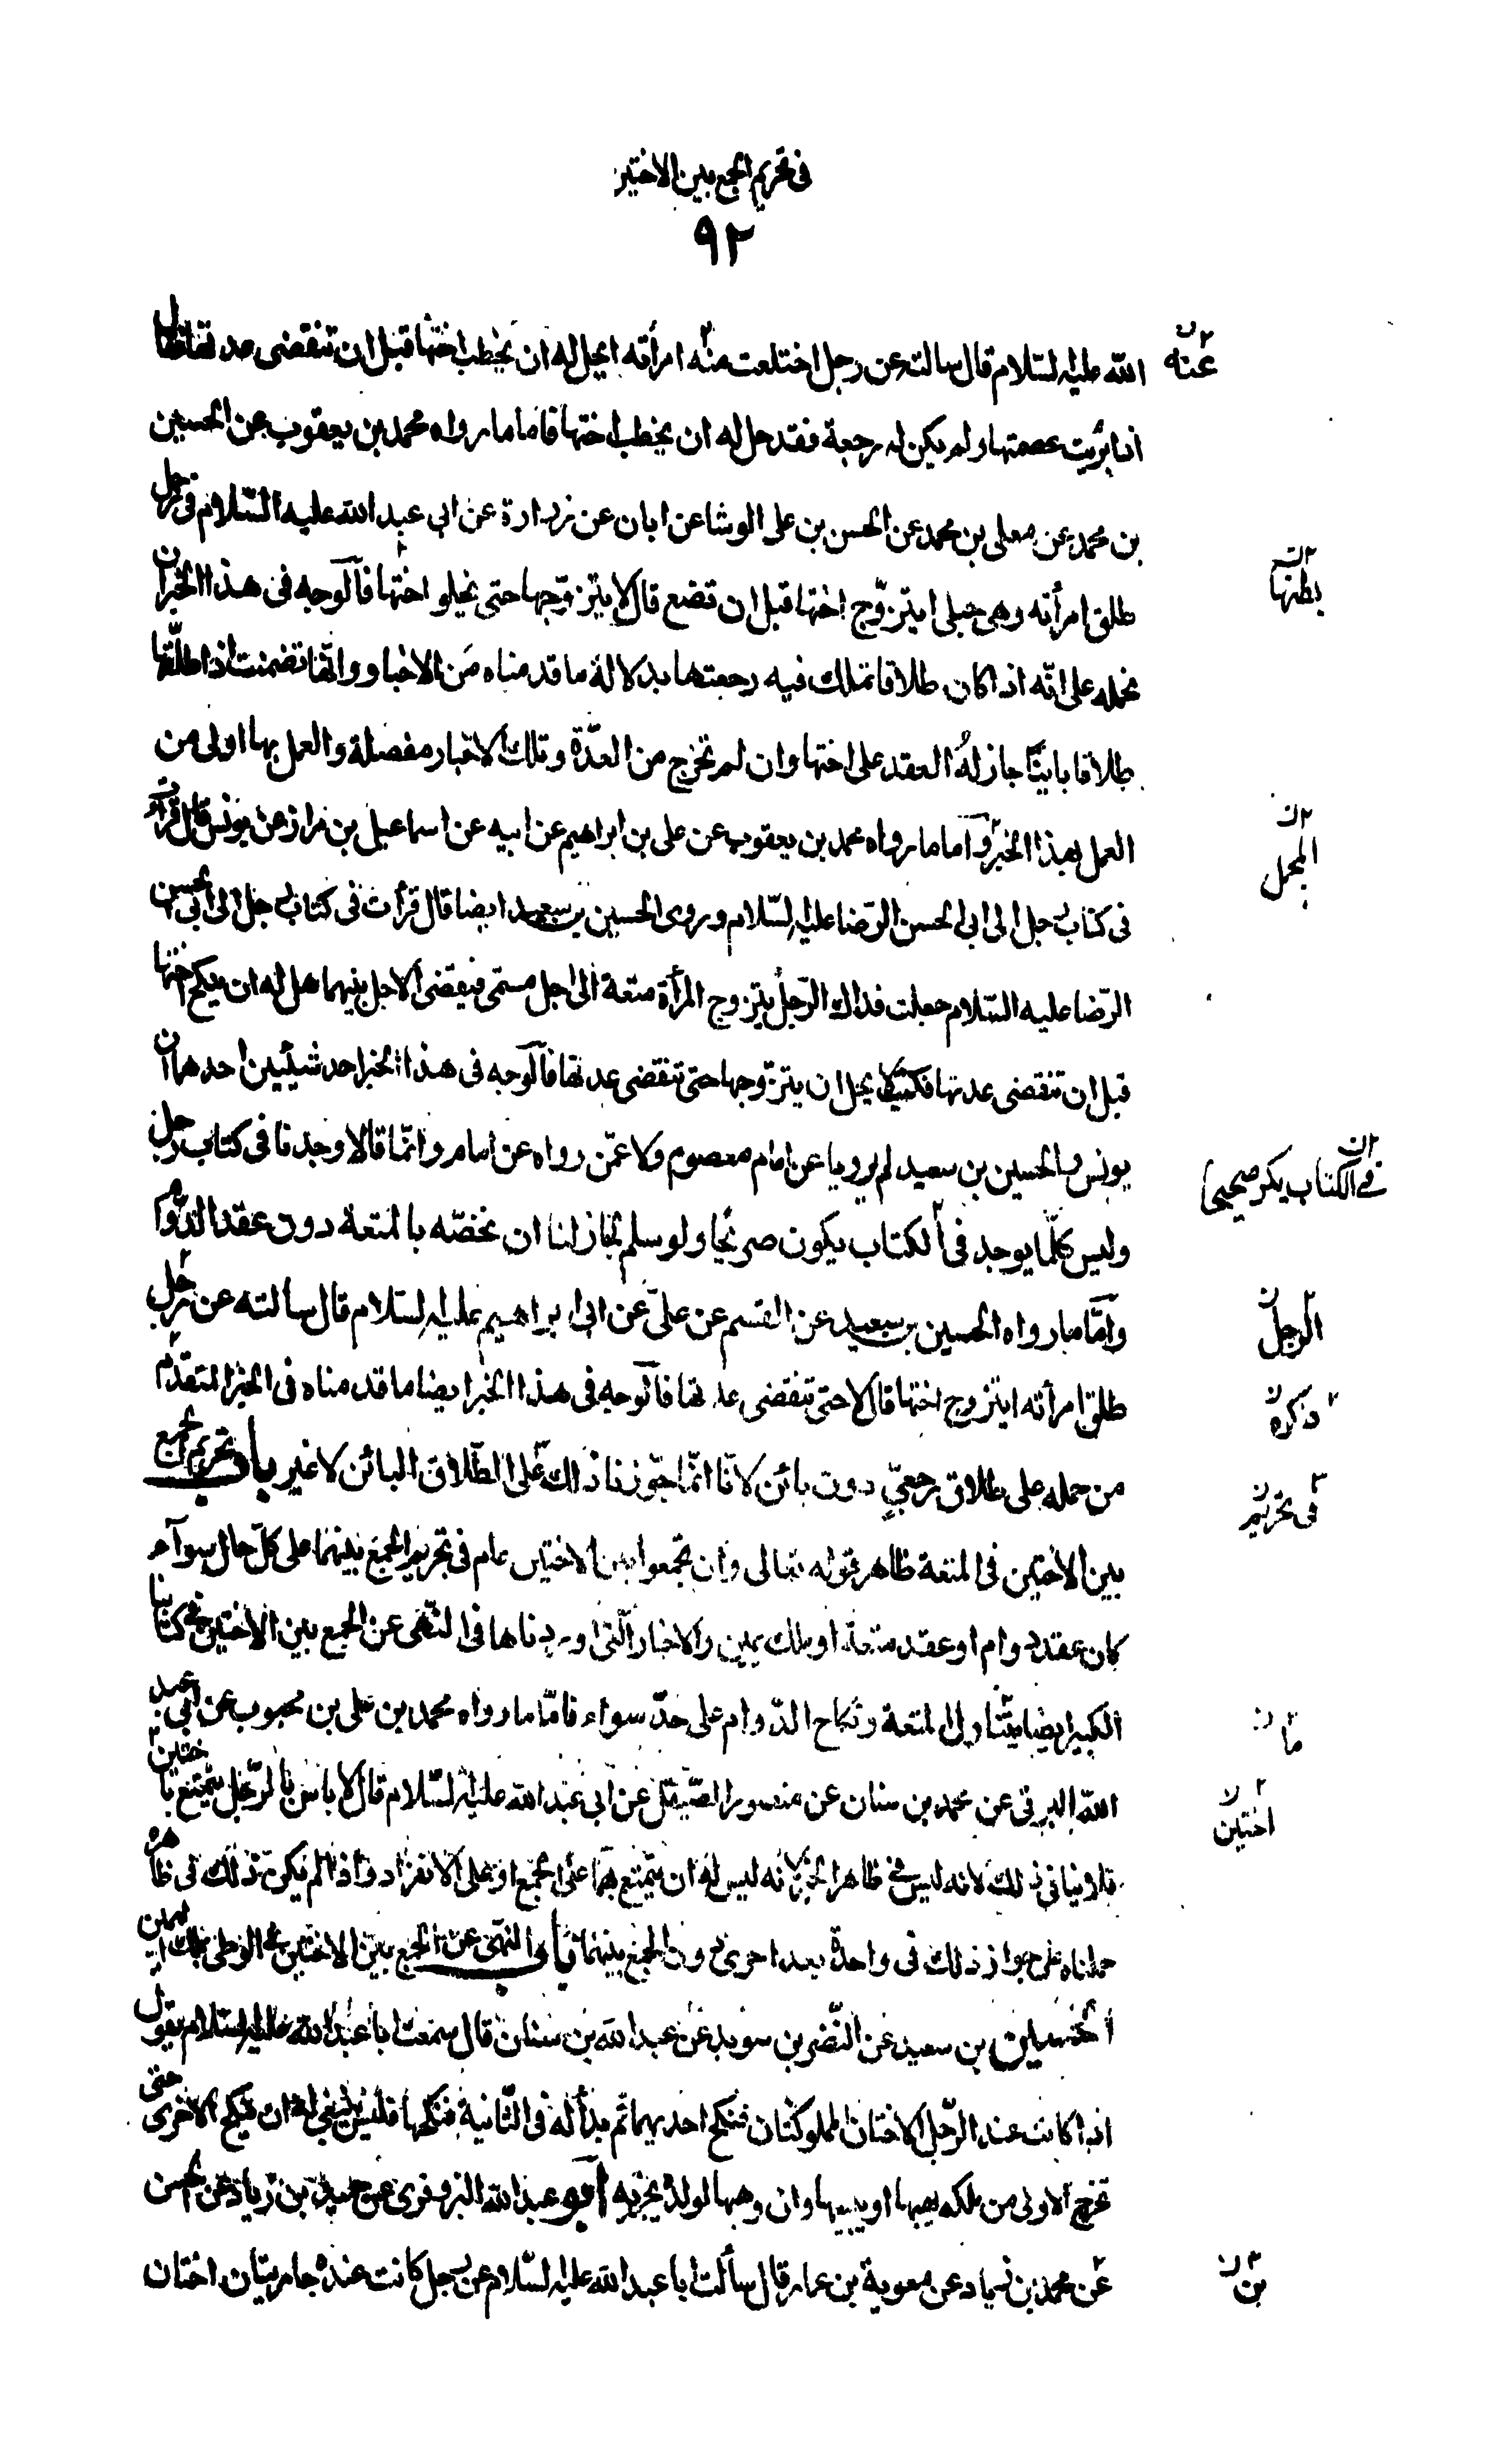 فى تحريم الجمع بين الاختين
٩٢
الله عليه السّلام قال سالته عن رجل اختلعت منه امرأته ايحل له ان يخطب اختها قبل ان تنقضى عدتها فقال
عنه ن
اذا برئت عصمتها ولم يكن له رجعة فقد حل له ان يخطب اختها فاما ما رواه محمد بن يعقوب عن الحسين
بن محمد عن معلى بن محمد عن الحسن بن على الوشا عن ابان عن زرارة عن ابى عبد الله عليه السّلام فى رجل
طلق امرأته وهى حبلى ايتزوّج اختها قبل ان تضع قال لا يتزوّجها حتى يخلو اختها فالوجه فى هذا الخبر ان
بطنها
نحمله على انّه اذا كان طلاقا تملك فيه رجعتها بدلالة ما قدمناه من الاخبار وانّها تضمنت اذا طلّقها
طلاقا باينًا جاز لهُ العقد على اختها وان لم تخرج من العدّة وتلك الاخبار مفصلة والعمل بها اولى من
العمل بهذا الخبر وامّا ما رواه محمد بن يعقوب عن على بن ابراهيم عن ابيه عن اسماعيل بن مرار عن يونس قال قرأت
المجمل
فى كتاب رجل الى ابى الحسن الرّضا عليه السّلام وروى الحسين بن سعيد ايضا قال قرأت فى كتاب رجل الى ابى الحسن
الرّضا عليه السّلام جعلت فداك الرّجل يتزوج المرأة متعة الى اجل مسمّى فينقضى الاجل بينهما هل له ان ينكح اختها
قبل ان تنقضى عدتها فكتب لا يحل ان يتزوجها حتى تنقضى عدتها فالوجه فى هذا الخبر احد شيئين احدهما ان
يونس والحسين بن سعيد لم يرويا عن امام معصوم ولا عمّن رواه عن امام وانّما قالا وجدنا فى كتاب رجل
وليس كلّما يوجد فى الكتاب يكون صريحًا ولو سلم لجاز لنا ان نخصّه بالمتعة دون عقد الدّوام
فى الكتاب يكون صحيحا
وامّا ما رواه الحسين بن سعيد عن القسم عن علىّ عن ابى ابراهيم عليه السّلام قال سالته عن رجل
الرجل ن
طلق امرأته ايتزوج اختها قال لا حتى تنقضى عدتها فالوجه فى هذا الخبر ايضا ما قدمناه فى الخبر المتقدّم
ذكره ن
من حمله على طلاق رجعىّ دون بائن لانّا انّما جوّزنا ذلك على الطّلاق البائن لا غير باب تحريم الجمع
فى تحريم ن
بين الاختين فى المتعة ظاهر قوله تعالى وان تجمعوا بين الاختين عام فى تحريم الجمع بينهما على كلّ حال سوآء
كان عقد دوام او عقد متعة او ملك يمين والاخبار الّتى اوردناها فى النّهى عن الجمع بين الاختين فى كتابنا
الكبير ايضا يتناول المتعة ونكاح الدّوام على حدّ سواء فامّا ما رواه محمد بن على بن محبوب عن ابى عبد
ما ن
الله البرقى عن محمد بن سنان عن منصور الصّيقل عن ابى عبد الله عليه السّلام قال لا باس بالرّجل يتمتع باختين
اختين
فلا ينافى ذلك لانه ليس فى ظاهر الخبر انه ليس له ان يتمتع بهما على الجمع او على الانفراد واذا لم يكن ذلك فى ظاهره
حملناه على جواز ذلك فى واحدة بعد اخرى دون الجمع بينهما باب النّهى عن الجمع بين الاختين فى الوطى بملك اليمين
الحسين بن سعيد عن النّضر بن سويد عن عبد الله بن سنان قال سمعت ابا عبد الله عليه السّلام يقول
اذا كانت عند الرّجل الاختان المملوكتان فنكح احديهما ثم بدأ له فى الثّانية فنكحها فليس ينبغى له ان ينكح الاخرى حتى
تخرج الاولى من ملكه يهبها او يبيعها وان وهبها لولده يجزيه ابو عبد الله البزوفرى عن حميد بن زياد عن الحسن
عن محمد بن زياد عن معوية بن عمار قال سألت ابا عبد الله عليه السّلام عن رجل كانت عنده جاريتان اختان
بن ن